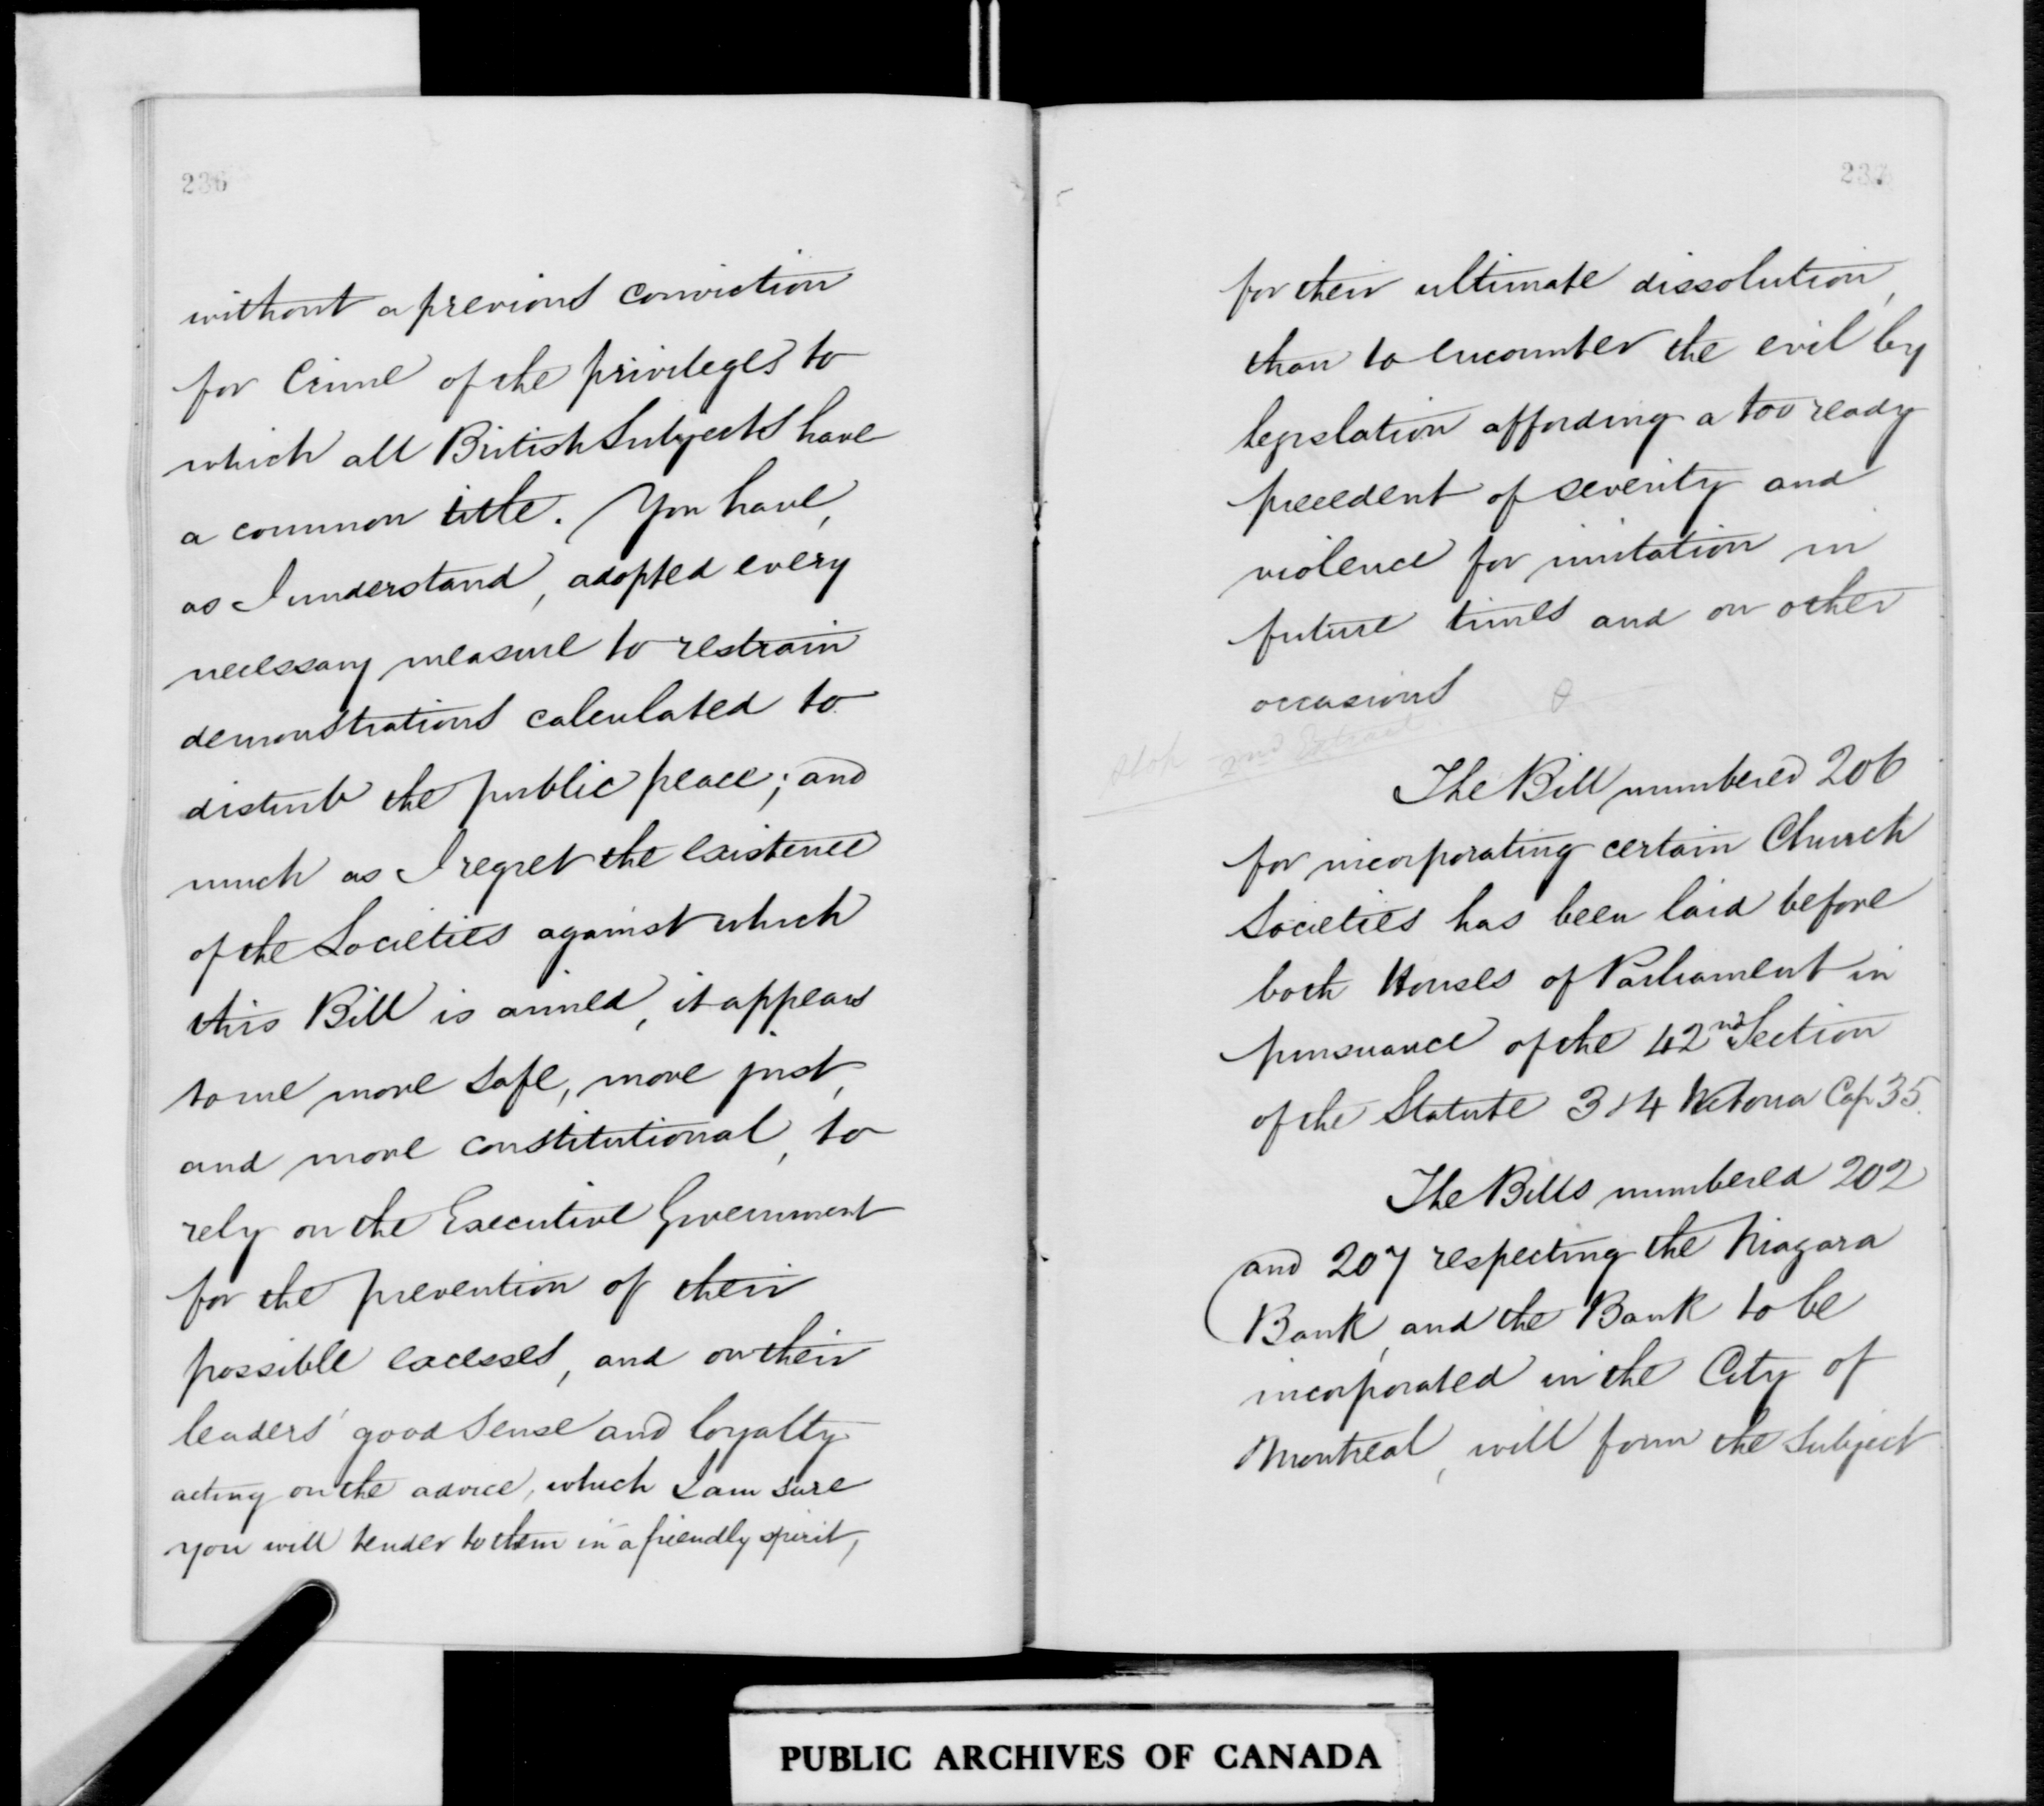 236
without a previous conviction
for Crime of the privileges to
which all British Subjects have
a common title. You have,
as I understand, adopted every
necessary measure to restrain
demonstrations calculated to
disturb the public peace; and
much as I regret the existence
of the Societies against which
this Bill is aimed, it appears
to me more safe, more just,
and more constitutional, to
rely on the Executive Government
for the prevention of their
possible excesses, and on their
leaders' good sense and loyalty
acting on the advice, which I am sure
you will tender to them in a friendly spirit,
237
for their ultimate dissolution,
than to encounter the evil by
legislation affording a too ready
precedent of severity and
violence for imitation in
future times and on other
occasions
Stop 2nd Extract
The Bill numbered 206
for incorporating certain Church
Societies has been laid before
both Houses of Parliament in
pursuance of the 42nd Section
of the Statute 3 & 4 Victoria Cap 35.
The Bills numbered 202
and 207 respecting the Niagara
Bank, and the Bank to be
incorporated in the City of
Montreal, will form the subject
PUBLIC ARCHIVES OF CANADA